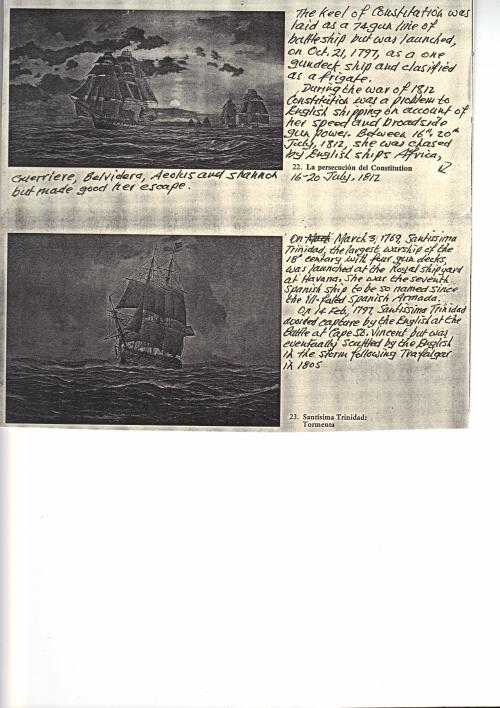 The keel of Constitution was
laid as a 74 gun line of
battleship but was launched,
on Oct. 21, 1797, as a one
gundeck ship and clasified
as a frigate.
During the war of 1812
Constitution was a problem to
English shipping on account of
her speed and broadside
gun power. Between 16th, 20th
July, 1812, she was chased
by English ships Africa,
22. La persecución del Constitution
16-20 July, 1812
Guerriere, Belvidera, Aeolus and Shannon
but made good her escape.
On March 3, 1769, Santissima
Trinidad, the largest warship of the
18th century with four gun decks,
was launched at the Royal shipyard
at Havana. She was the seventh
Spanish ship to be so named since
the ill-fated Spanish Armada.
On 14 Feb. 1797, Santissima Trinidad
avoided capture by the English at the
Battle at Cape St. Vincent but was
eventually scuttled by the English
in the storm following Trafalgar
in 1805
23. Santísima Trinidad:
Tormenta